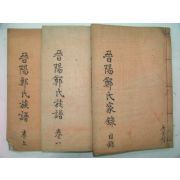 晉陽鄭氏家錄 目錄
晉陽鄭氏族譜 卷八
晉陽鄭氏族譜 卷上